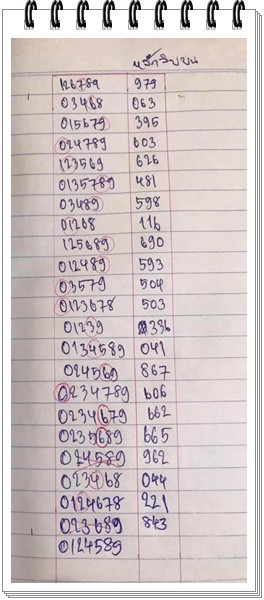 หลักสิบบน
126789 979
03468 063
015679 395
024789 603
123569 626
0135789 481
03489 598
01268 116
125689 690
012489 593
03579 504
0123678 503
01239 336
0134589 041
024569 867
0234789 606
0234679 662
0235689 665
024589 962
023468 044
0124678 221
023689 843
0124589